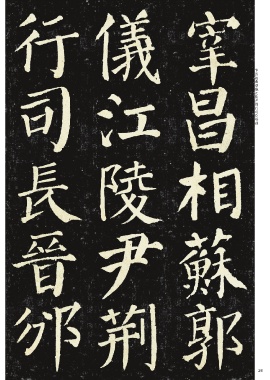 宰昌相蘇郭
儀江陵尹荆
行司長晉邠